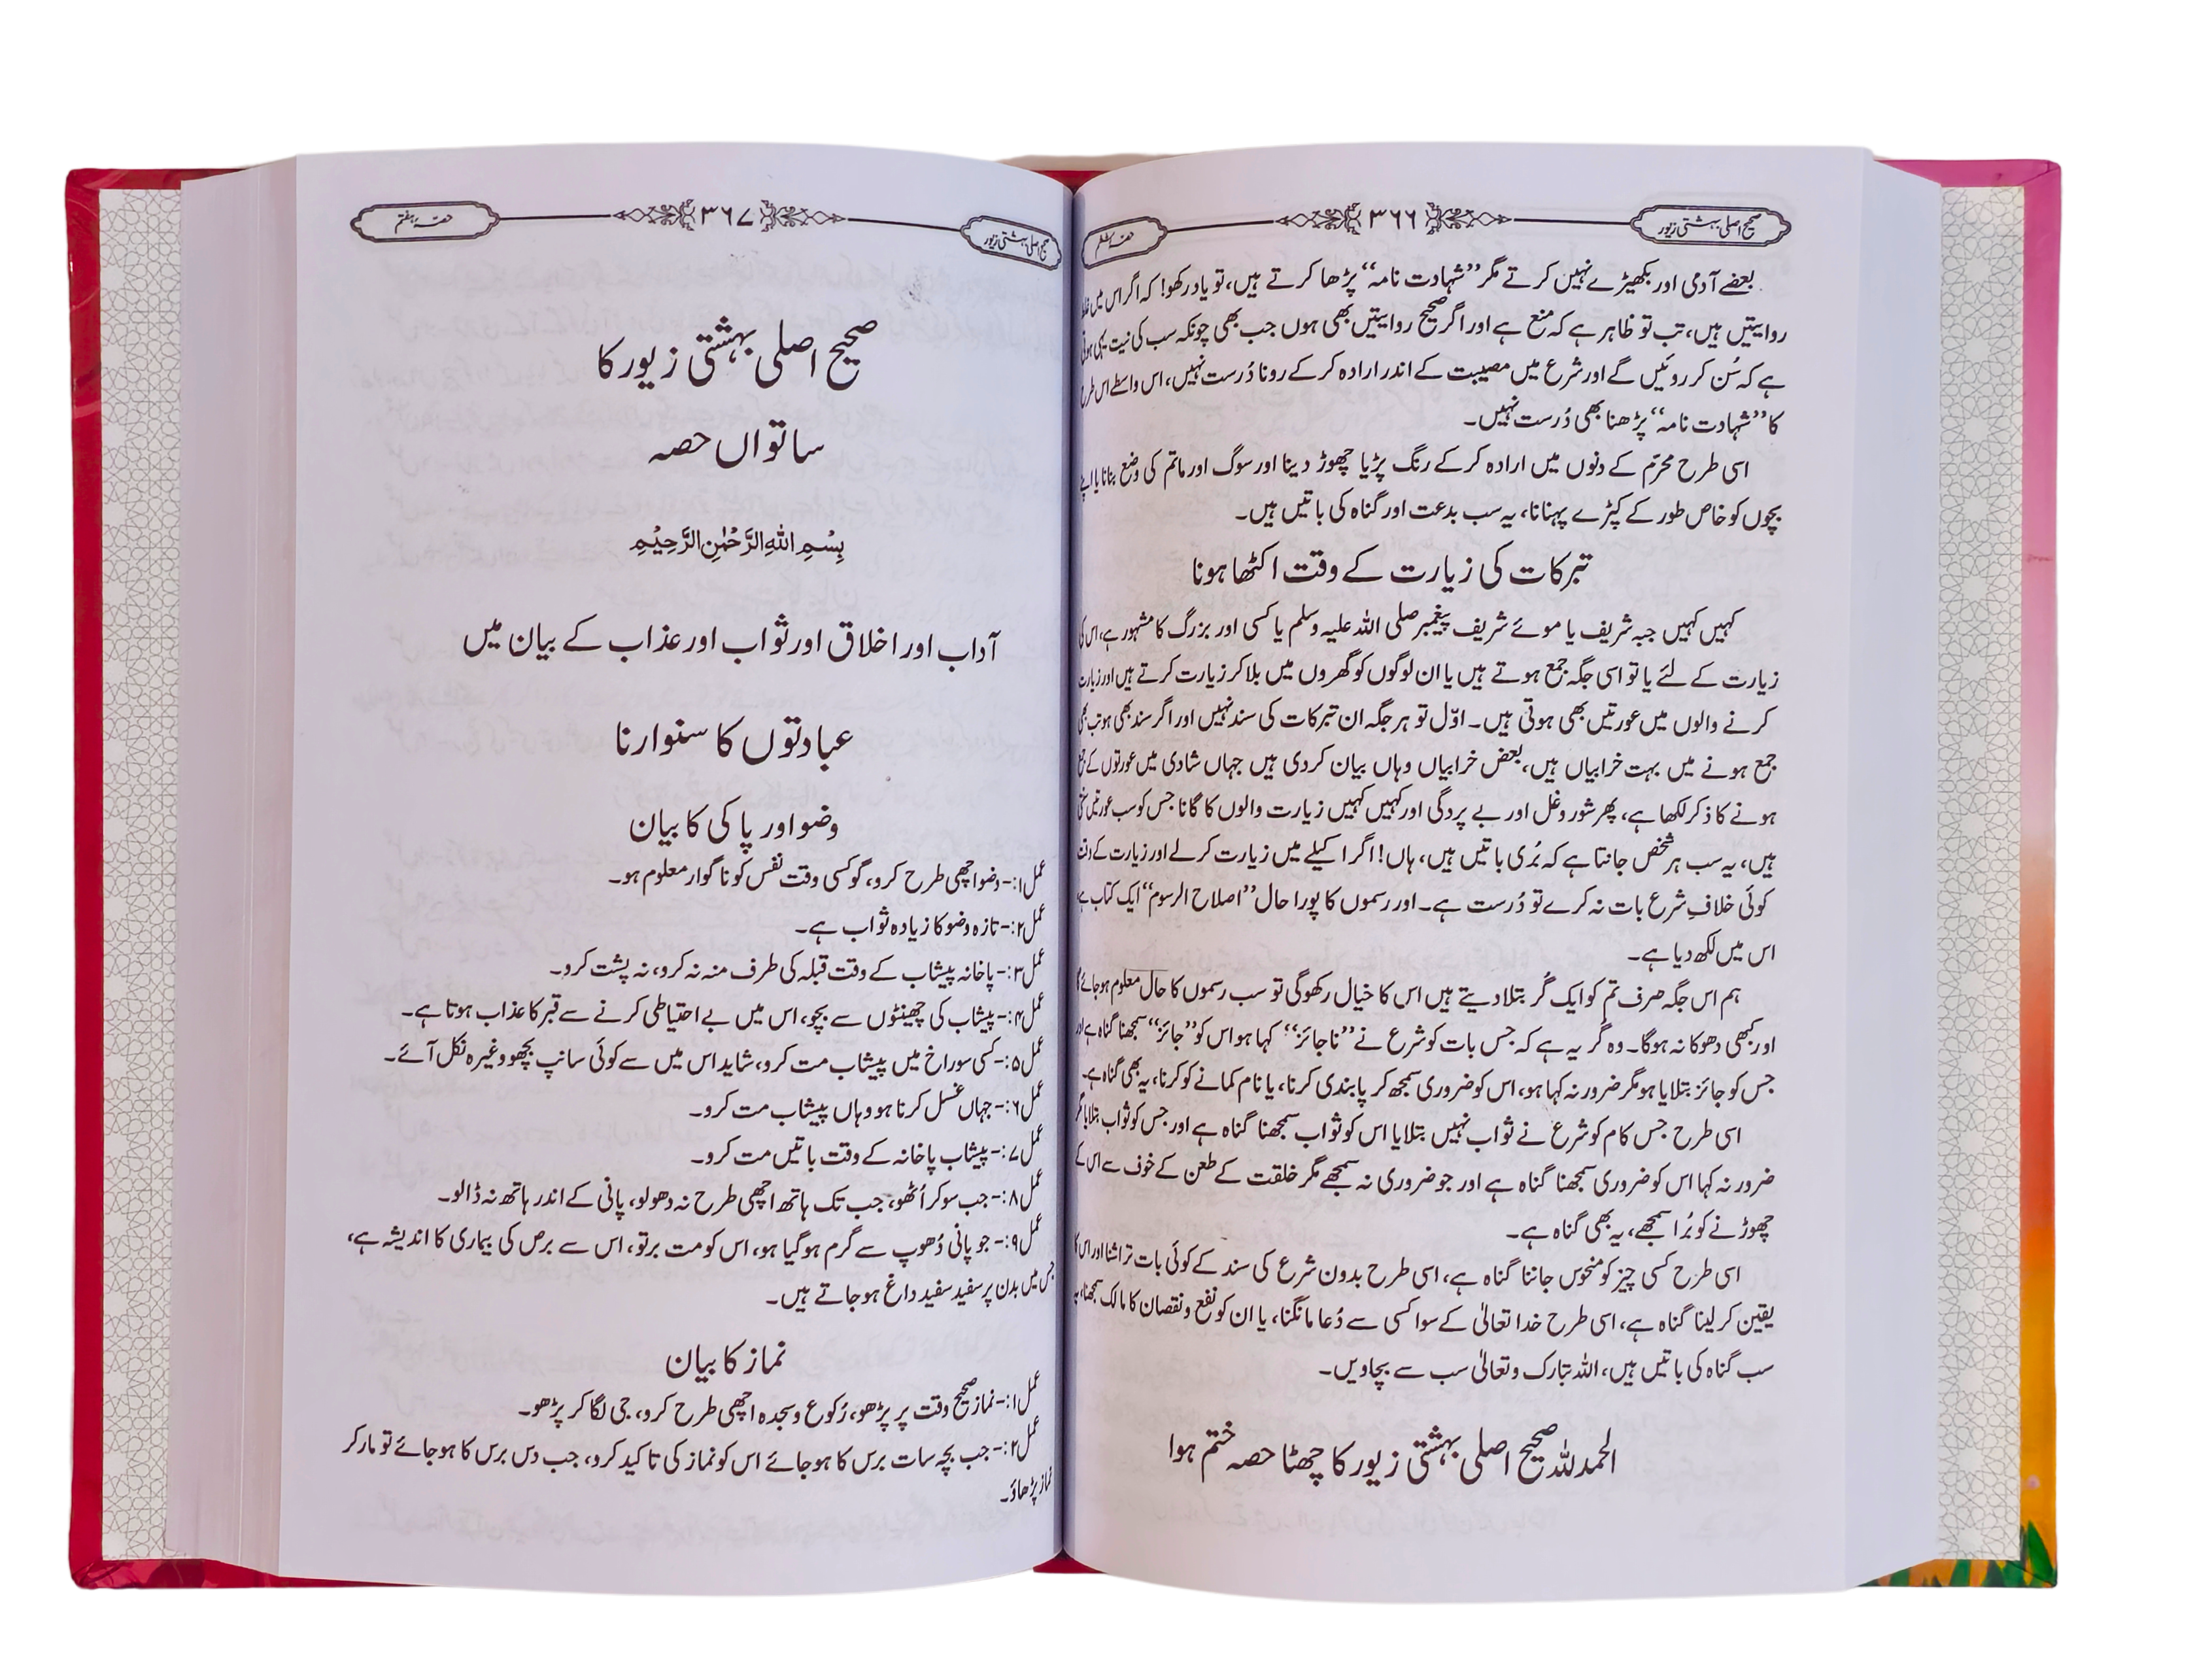 صحیح اصلی بہشتی زیور
۳۶۶
بعضے آدمی اور بکھیڑے نہیں کرتے مگر ’’شہادت نامہ‘‘ پڑھا کرتے ہیں، تو یاد رکھو! کہ اگر اس میں
روایتیں ہیں، تب تو ظاہر ہے کہ منع ہے اور اگر صحیح روایتیں بھی ہوں جب بھی چونکہ سب کی نیت یہی ہوتی
ہے کہ سُن کر روئیں گے اور شرع میں مصیبت کے اندر ارادہ کرکے رونا دُرست نہیں، اس واسطے اس طرح
کا ’’شہادت نامہ‘‘ پڑھنا بھی دُرست نہیں۔
اسی طرح محرّم کے دنوں میں ارادہ کرکے رنگ پڑیا چھوڑ دینا اور سوگ اور ماتم کی وضع بنانا یا اپنے
بچوں کو خاص طور کے کپڑے پہنانا، یہ سب بدعت اور گناہ کی باتیں ہیں۔
تبرکات کی زیارت کے وقت اکٹھا ہونا
کہیں کہیں جبہ شریف یا موئے شریف پیغمبر صلی اللہ علیہ وسلم یا کسی اور بزرگ کا مشہور ہے، اس کی
زیارت کے لئے یا تو اسی جگہ جمع ہوتے ہیں یا ان لوگوں کو گھروں میں بلا کر زیارت کرتے ہیں اور زیارت
کرنے والوں میں عورتیں بھی ہوتی ہیں۔ اوّل تو ہر جگہ ان تبرکات کی سند نہیں اور اگر سند بھی ہو تب بھی
جمع ہونے میں بہت خرابیاں ہیں، بعض خرابیاں وہاں بیان کردی ہیں جہاں شادی میں عورتوں کے جمع
ہونے کا ذکر لکھا ہے، پھر شور و غل اور بے پردگی اور کہیں کہیں زیارت والوں کا گانا جس کو سب عورتیں سنتی
ہیں، یہ سب ہر شخص جانتا ہے کہ بُری باتیں ہیں، ہاں! اگر اکیلے میں زیارت کرلے اور زیارت کے وقت
کوئی خلافِ شرع بات نہ کرے تو دُرست ہے۔ اور رسموں کا پورا حال ’’اصلاح الرسوم‘‘ ایک کتاب ہے
اس میں لکھ دیا ہے۔
ہم اس جگہ صرف تم کو ایک گُر بتلا دیتے ہیں اس کا خیال رکھو گی تو سب رسموں کا حال معلوم ہوجائے گا
اور کبھی دھوکا نہ ہوگا۔ وہ گُر یہ ہے کہ جس بات کو شرع نے ’’ناجائز‘‘ کہا ہو اس کو ’’جائز‘‘ سمجھنا گناہ ہے اور
جس کو جائز بتلایا ہو مگر ضرور نہ کہا ہو، اس کو ضروری سمجھ کر پابندی کرنا، یا نام کمانے کو کرنا، یہ بھی گناہ ہے۔
اسی طرح جس کام کو شرع نے ثواب نہیں بتلایا اس کو ثواب سمجھنا گناہ ہے اور جس کو ثواب بتلایا مگر
ضرور نہ کہا اس کو ضروری سمجھنا گناہ ہے اور جو ضروری نہ سمجھے مگر خلقت کے طعن کے خوف سے اس کے
چھوڑنے کو بُرا سمجھے، یہ بھی گناہ ہے۔
اسی طرح کسی چیز کو منحوس جاننا گناہ ہے، اسی طرح بدون شرع کی سند کے کوئی بات تراشنا اور اس کا
یقین کرلینا گناہ ہے، اسی طرح خدا تعالیٰ کے سوا کسی سے دُعا مانگنا، یا ان کو نفع و نقصان کا مالک سمجھنا، یہ
سب گناہ کی باتیں ہیں، اللہ تبارک وتعالیٰ سب سے بچاویں۔
الحمدللہ صحیح اصلی بہشتی زیور کا چھٹا حصہ ختم ہوا
صحیح اصلی بہشتی زیور
۳۶۷
حصہ ہفتم
صحیح اصلی بہشتی زیور کا
ساتواں حصہ
بِسْمِ اللهِ الرَّحْمٰنِ الرَّحِيْمِ
آداب اور اخلاق اور ثواب اور عذاب کے بیان میں
عبادتوں کا سنوارنا
وضو اور پاکی کا بیان
عمل۱:- وضو اچھی طرح کرو، گو کسی وقت نفس کو ناگوار معلوم ہو۔
عمل۲:- تازہ وضو کا زیادہ ثواب ہے۔
عمل۳:- پاخانہ پیشاب کے وقت قبلہ کی طرف منہ نہ کرو، نہ پشت کرو۔
عمل۴:- پیشاب کی چھینٹوں سے بچو، اس میں بے احتیاطی کرنے سے قبر کا عذاب ہوتا ہے۔
عمل۵:- کسی سوراخ میں پیشاب مت کرو، شاید اس میں سے کوئی سانپ بچھو وغیرہ نکل آئے۔
عمل۶:- جہاں غسل کرنا ہو وہاں پیشاب مت کرو۔
عمل۷:- پیشاب پاخانہ کے وقت باتیں مت کرو۔
عمل۸:- جب سو کر اُٹھو، جب تک ہاتھ اچھی طرح نہ دھولو، پانی کے اندر ہاتھ نہ ڈالو۔
عمل۹:- جو پانی دُھوپ سے گرم ہوگیا ہو، اس کو مت برتو، اس سے برص کی بیماری کا اندیشہ ہے،
جس میں بدن پر سفید سفید داغ ہوجاتے ہیں۔
نماز کا بیان
عمل۱:- نماز صحیح وقت پر پڑھو، رُکوع و سجدہ اچھی طرح کرو، جی لگا کر پڑھو۔
عمل۲:- جب بچہ سات برس کا ہوجائے اس کو نماز کی تاکید کرو، جب دس برس کا ہوجائے تو مار کر
نماز پڑھاؤ۔